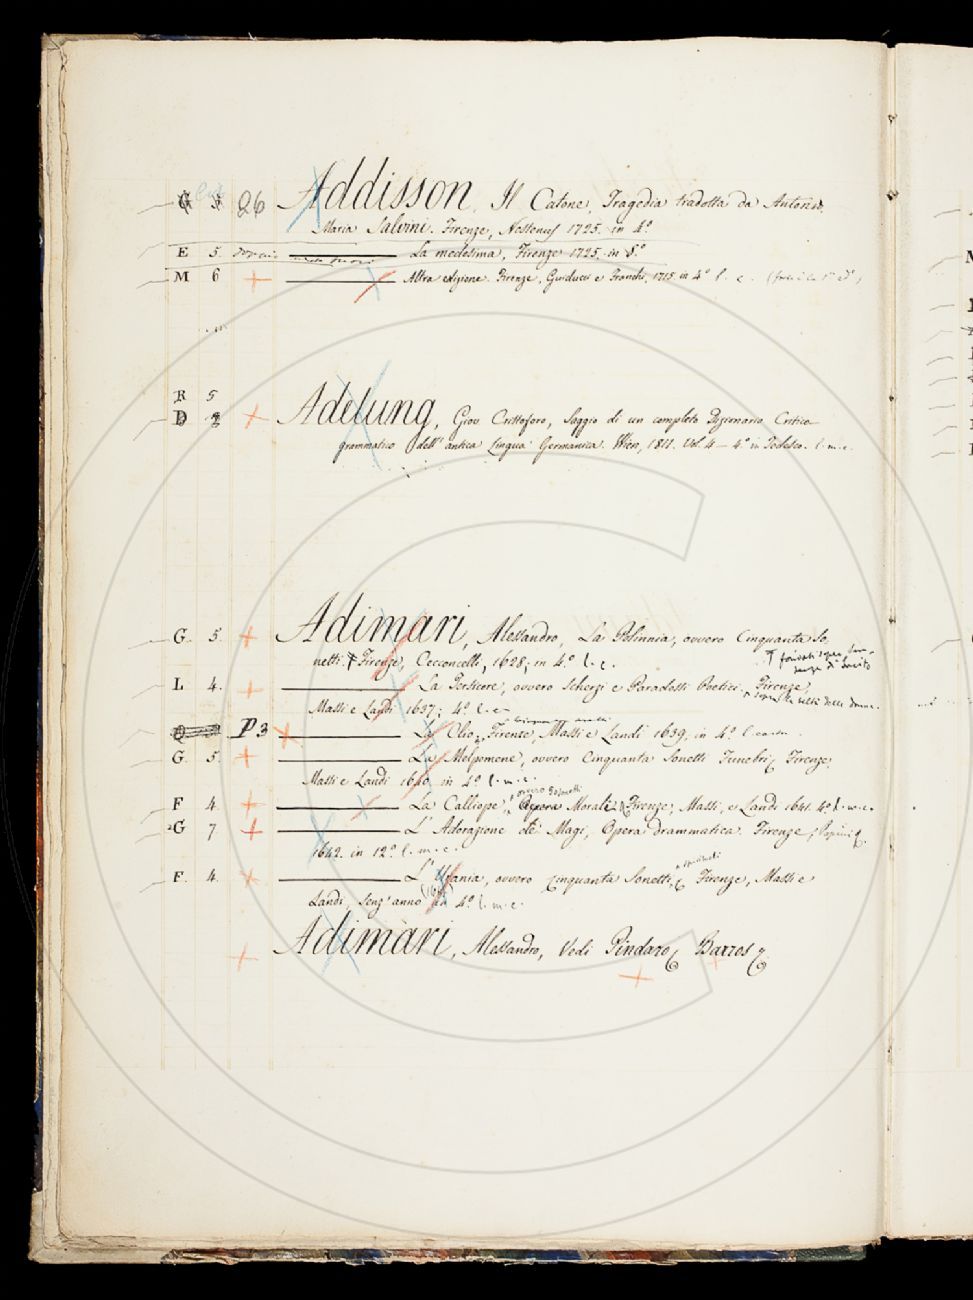 G 5 26 Addisson, Il Catone, Tragedia tradotta da Antonio,
Maria Salvini. Firenze, Nestenus 1725. in 4º
E 5. La medesima, Firenze 1725. in 8º
M 6 Altra edizione. Firenze, Guiducci e Franchi, 1715 in 4º l. c.
R 5
D 2 Adelung, Giov Cristoforo, Saggio di un completo Dizionario Critico
grammatico dell' antica Lingua Germanica. Wien, 1811. Vol. 4 - 4º in Tedesco. l. m. c.
G. 5. Adimari, Alessandro, La Polinnia, ovvero Cinquanta So-
netti. Firenze, Cecconcelli, 1628; in 4º l. c.
fondati sopra sen-
tenze di Tacito
L 4. La Tersicore, ovvero Scherzi e Paradossi Poetici. Firenze,
sopra la beltà delle donne
Massi e Landi 1637; 4º l. c.
P3 La Clio, Firenze, Massi e Landi 1639. in 4º l.
G. 5. La Melpomene, ovvero Cinquanta Sonetti Funebri; Firenze
Massi e Landi 1640. in 4º l. m. c.
ovvero 50 Sonetti
F 4. La Calliope, Morali Firenze, Massi, e Landi 1641. 4º l. m. c.
G 7 L' Adorazione de' Magi, Opera drammatica. Firenze,
1642. in 12º l. m. c.
F. 4. L' Urania, ovvero Cinquanta Sonetti, Firenze, Massi e
Landi, senz' anno in 4º l. m. c.
Adimari, Alessandro, Vedi Pindaro, Barros